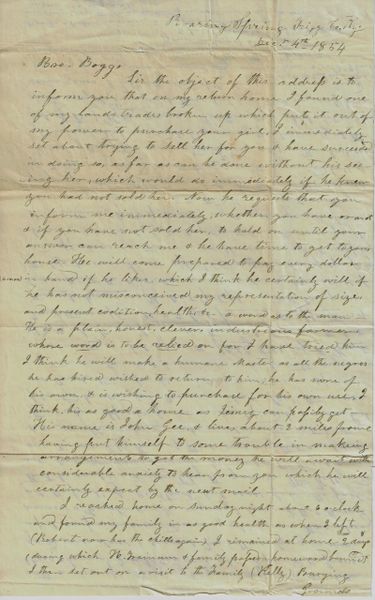 Roaring Spring Trigg Co. Ky
Dec. 4th 1854
Bro. Boggs
Sir the object of this address is to
inform you that on my return home I found one
of my hands trades broken up which put it out of
my power to purchase your girl, I immediately
set about trying to sell her for you & have succeeded
in doing so, as far as can be done without his see
ing her, which would do immediately if he knew
you had not sold her. Now he requests that you
inform me immediately, whether you have or not
& if you have not sold her, to hold on until your
answer can reach me & he have time to get to your
house. He will come prepared to pay every dollar
in hand if he likes which I think he certainly will if
he has not misconceived my representation of size
and present condition, health, &c. a word as to the man
He is a plain, honest, clever, industrious farmer
whose word is to be relied on for I have tried him
I think he will make a humane Master as all the negroes
he has hired wished to return to him, he has none of
his own, & is wishing to purchase for his own use, I
think, his as good a home as can possibly get
His name is John Gee, & lives about 2 miles from me
having put himself to some trouble in making
arrangements to get the money he will await with
considerable anxiety to hear from you which he will
certainly expect by the next mail.
I reached home on Sunday night about 6 o'clock
and found my family in as good health as when I left
(Robert now has the chills again) I remained at home 2 days
(during which H. Freeman & family
I then set out on a visit to the Family (Kelly) Burying
Grounds